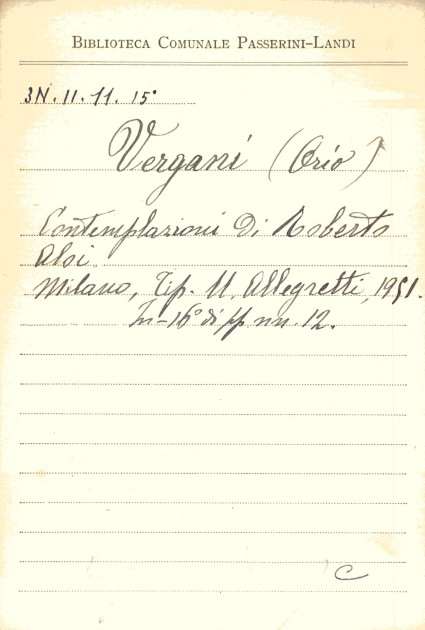 BIBLIOTECA COMUNALE PASSERINI-LANDI
3N. 11. 11. 15°
Vergani (Orio)
Contemplazioni di Roberto
Aloi.
Milano, Tip. U. Allegretti, 1951.
In-16° di pp nn. 12.
C